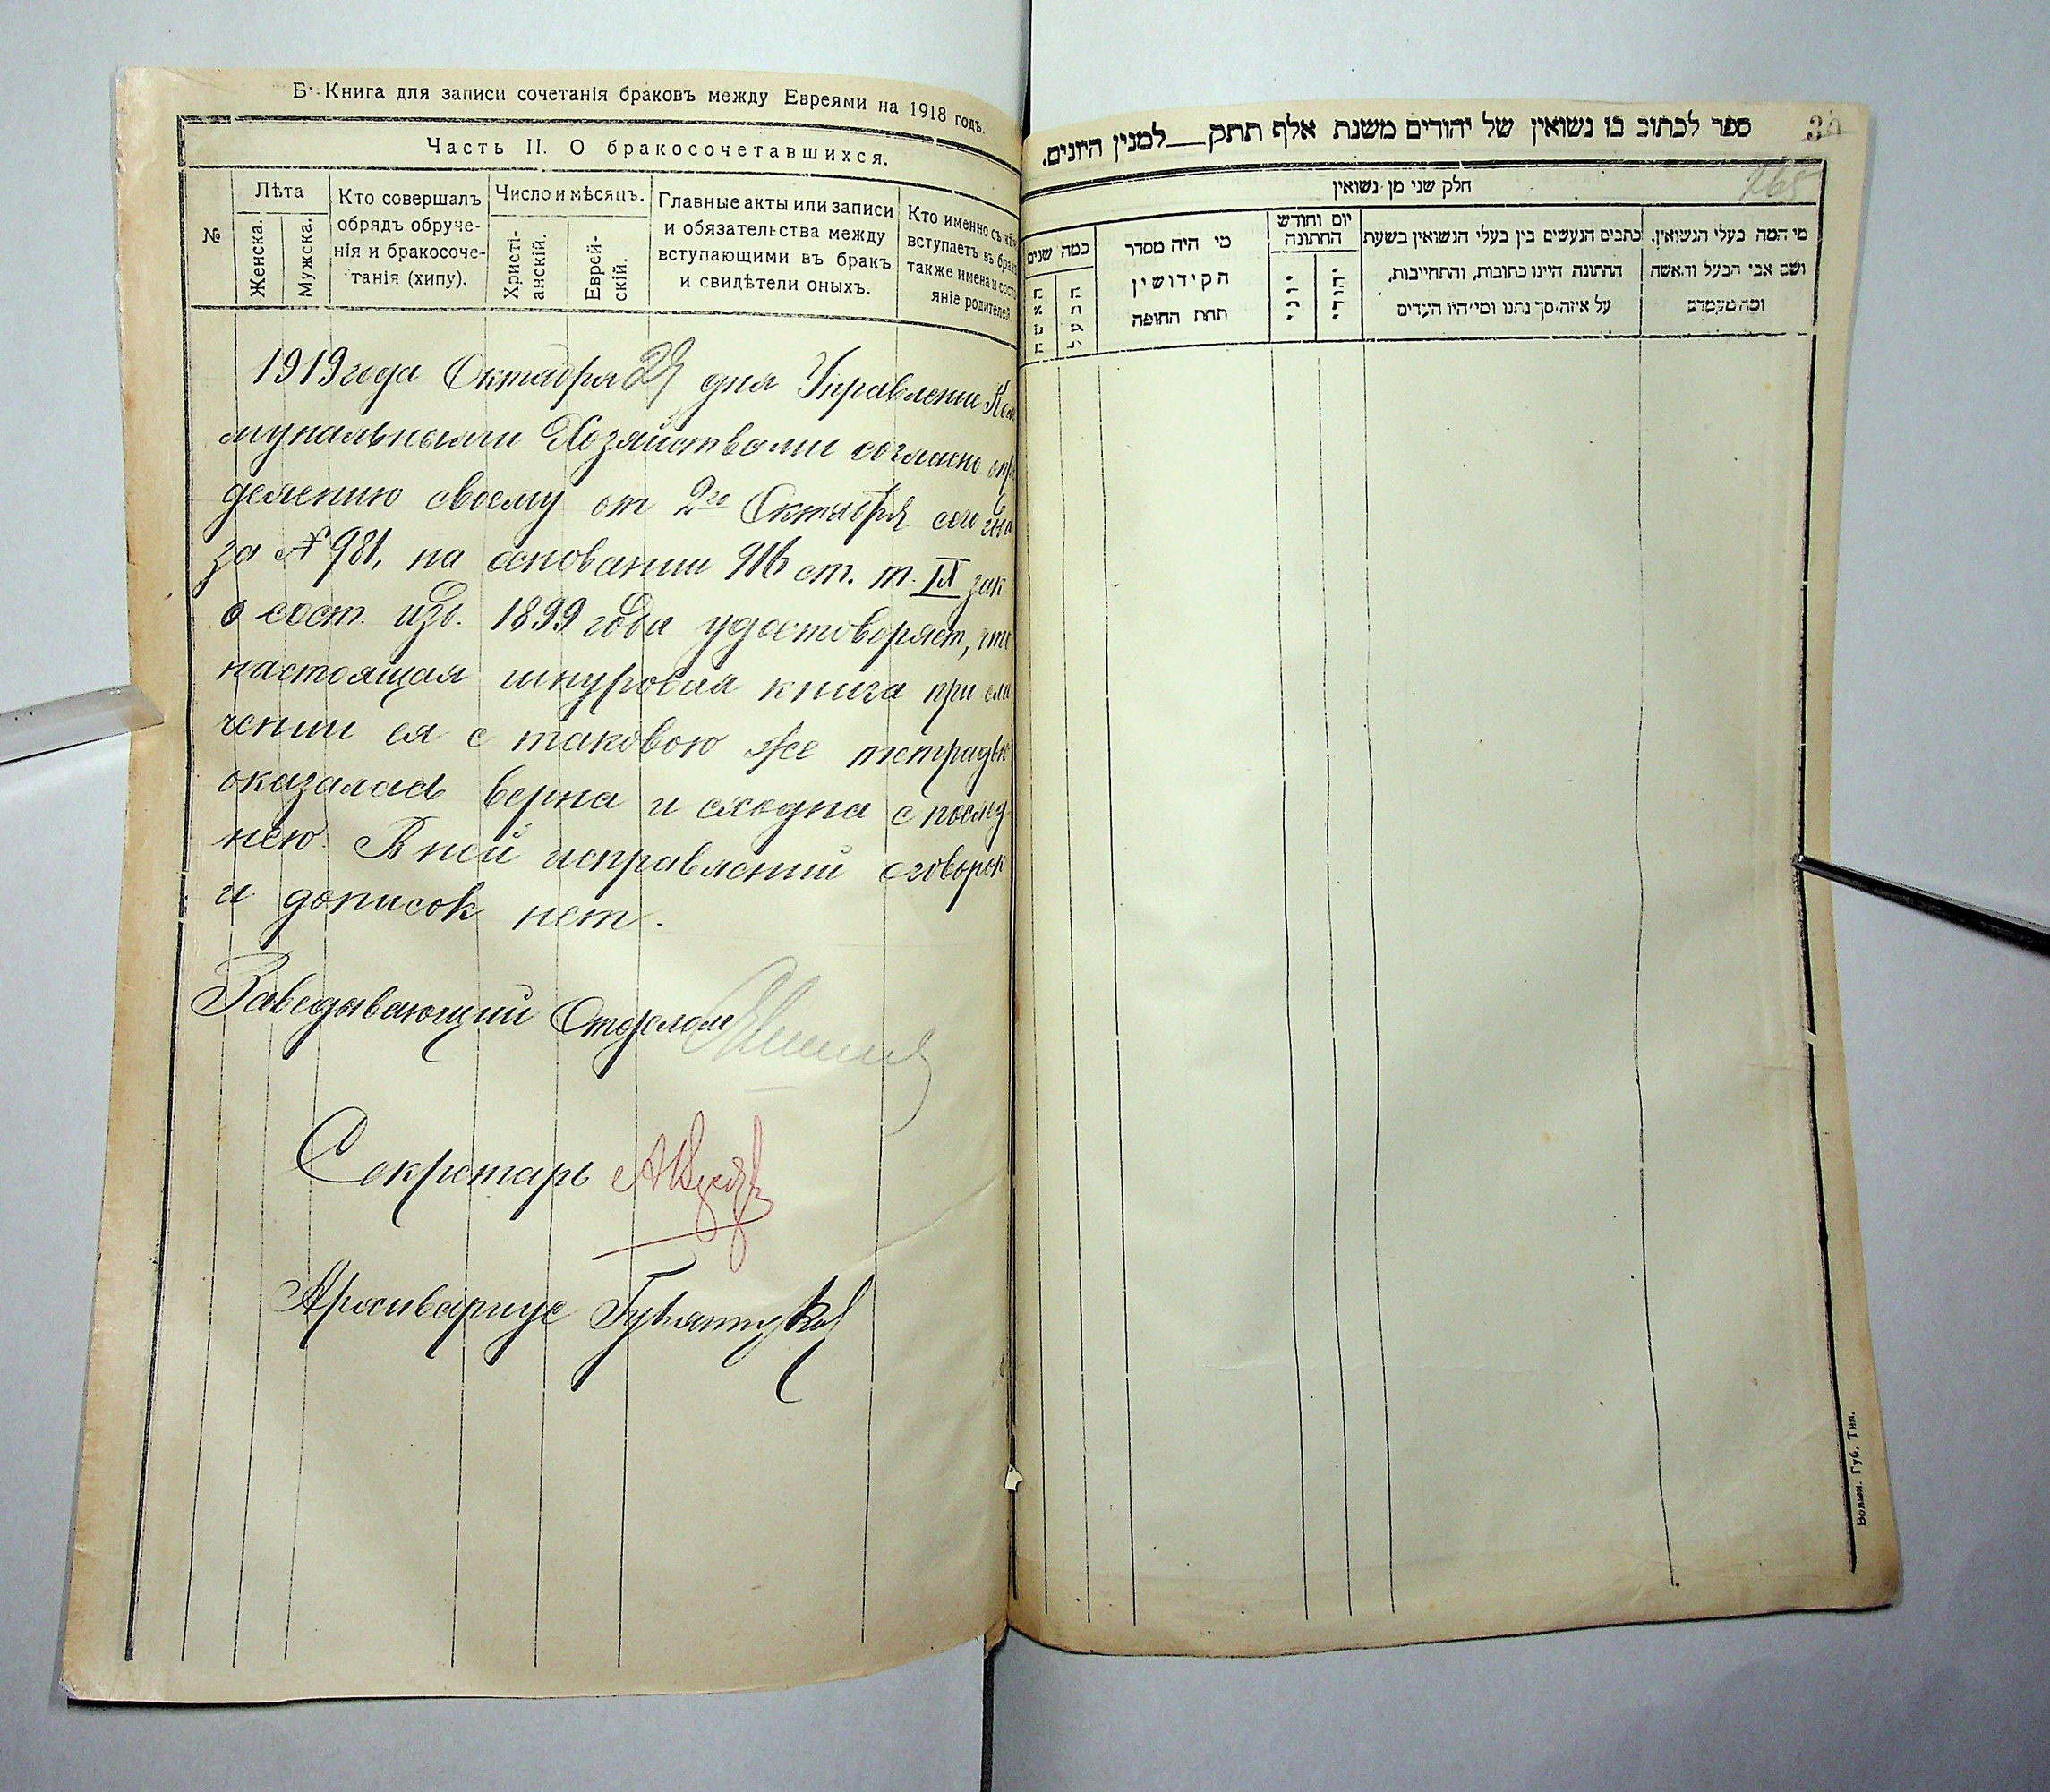 Б. Книга для записи сочетанія браковъ между Евреями на 1918 годъ.
Часть II. О бракосочетавшихся.
№
Лѣта
Женска.
Мужска.
Кто совершалъ
обрядъ обруче-
нія и бракосоче-
танія (хипу).
Число и мѣсяцъ.
Христі-
анскій.
Еврей-
скій.
Главные акты или записи
и обязательства между
вступающими въ бракъ
и свидѣтели оныхъ.
Кто именно съ
вступаетъ въ
также имена и
яніе родителей
1919 года Октября дня Управление Ком
мунальными Хозяйствами согласно опре
делению своему от 2го Октября сего
за № 981, на основании 916 ст. т. IX зак
о сост. изд. 1899 года удостоверяет, что
настоящая шнуровая книга при сли
чении ея с таковою же тетрадью
оказалась верна и сходна с послед
нею. В ней исправлений оговорок
и дописок нет.
Заведывающий Отделом
Секретарь
Архивариус
ספר לכתוב בו נשואין של יהודים משנת אלף תתק למנין היונים.
חלק שני מן נשואין
מי המה בעלי הנשואין,
ושם אבי הבעל והאשה
ומה מעמדם
כתבים הנעשים בין בעלי הנשואין בשעת
החתונה היינו כתובות, והתחייבות,
על איזה סך נתנו ומי היו העדים
יום וחודש
החתונה
יהודי
יוני
מי היה מסדר
הקידושין
תחת החופה
כמה שנים
הבעל
האשה
Волын. Губ. Тип.